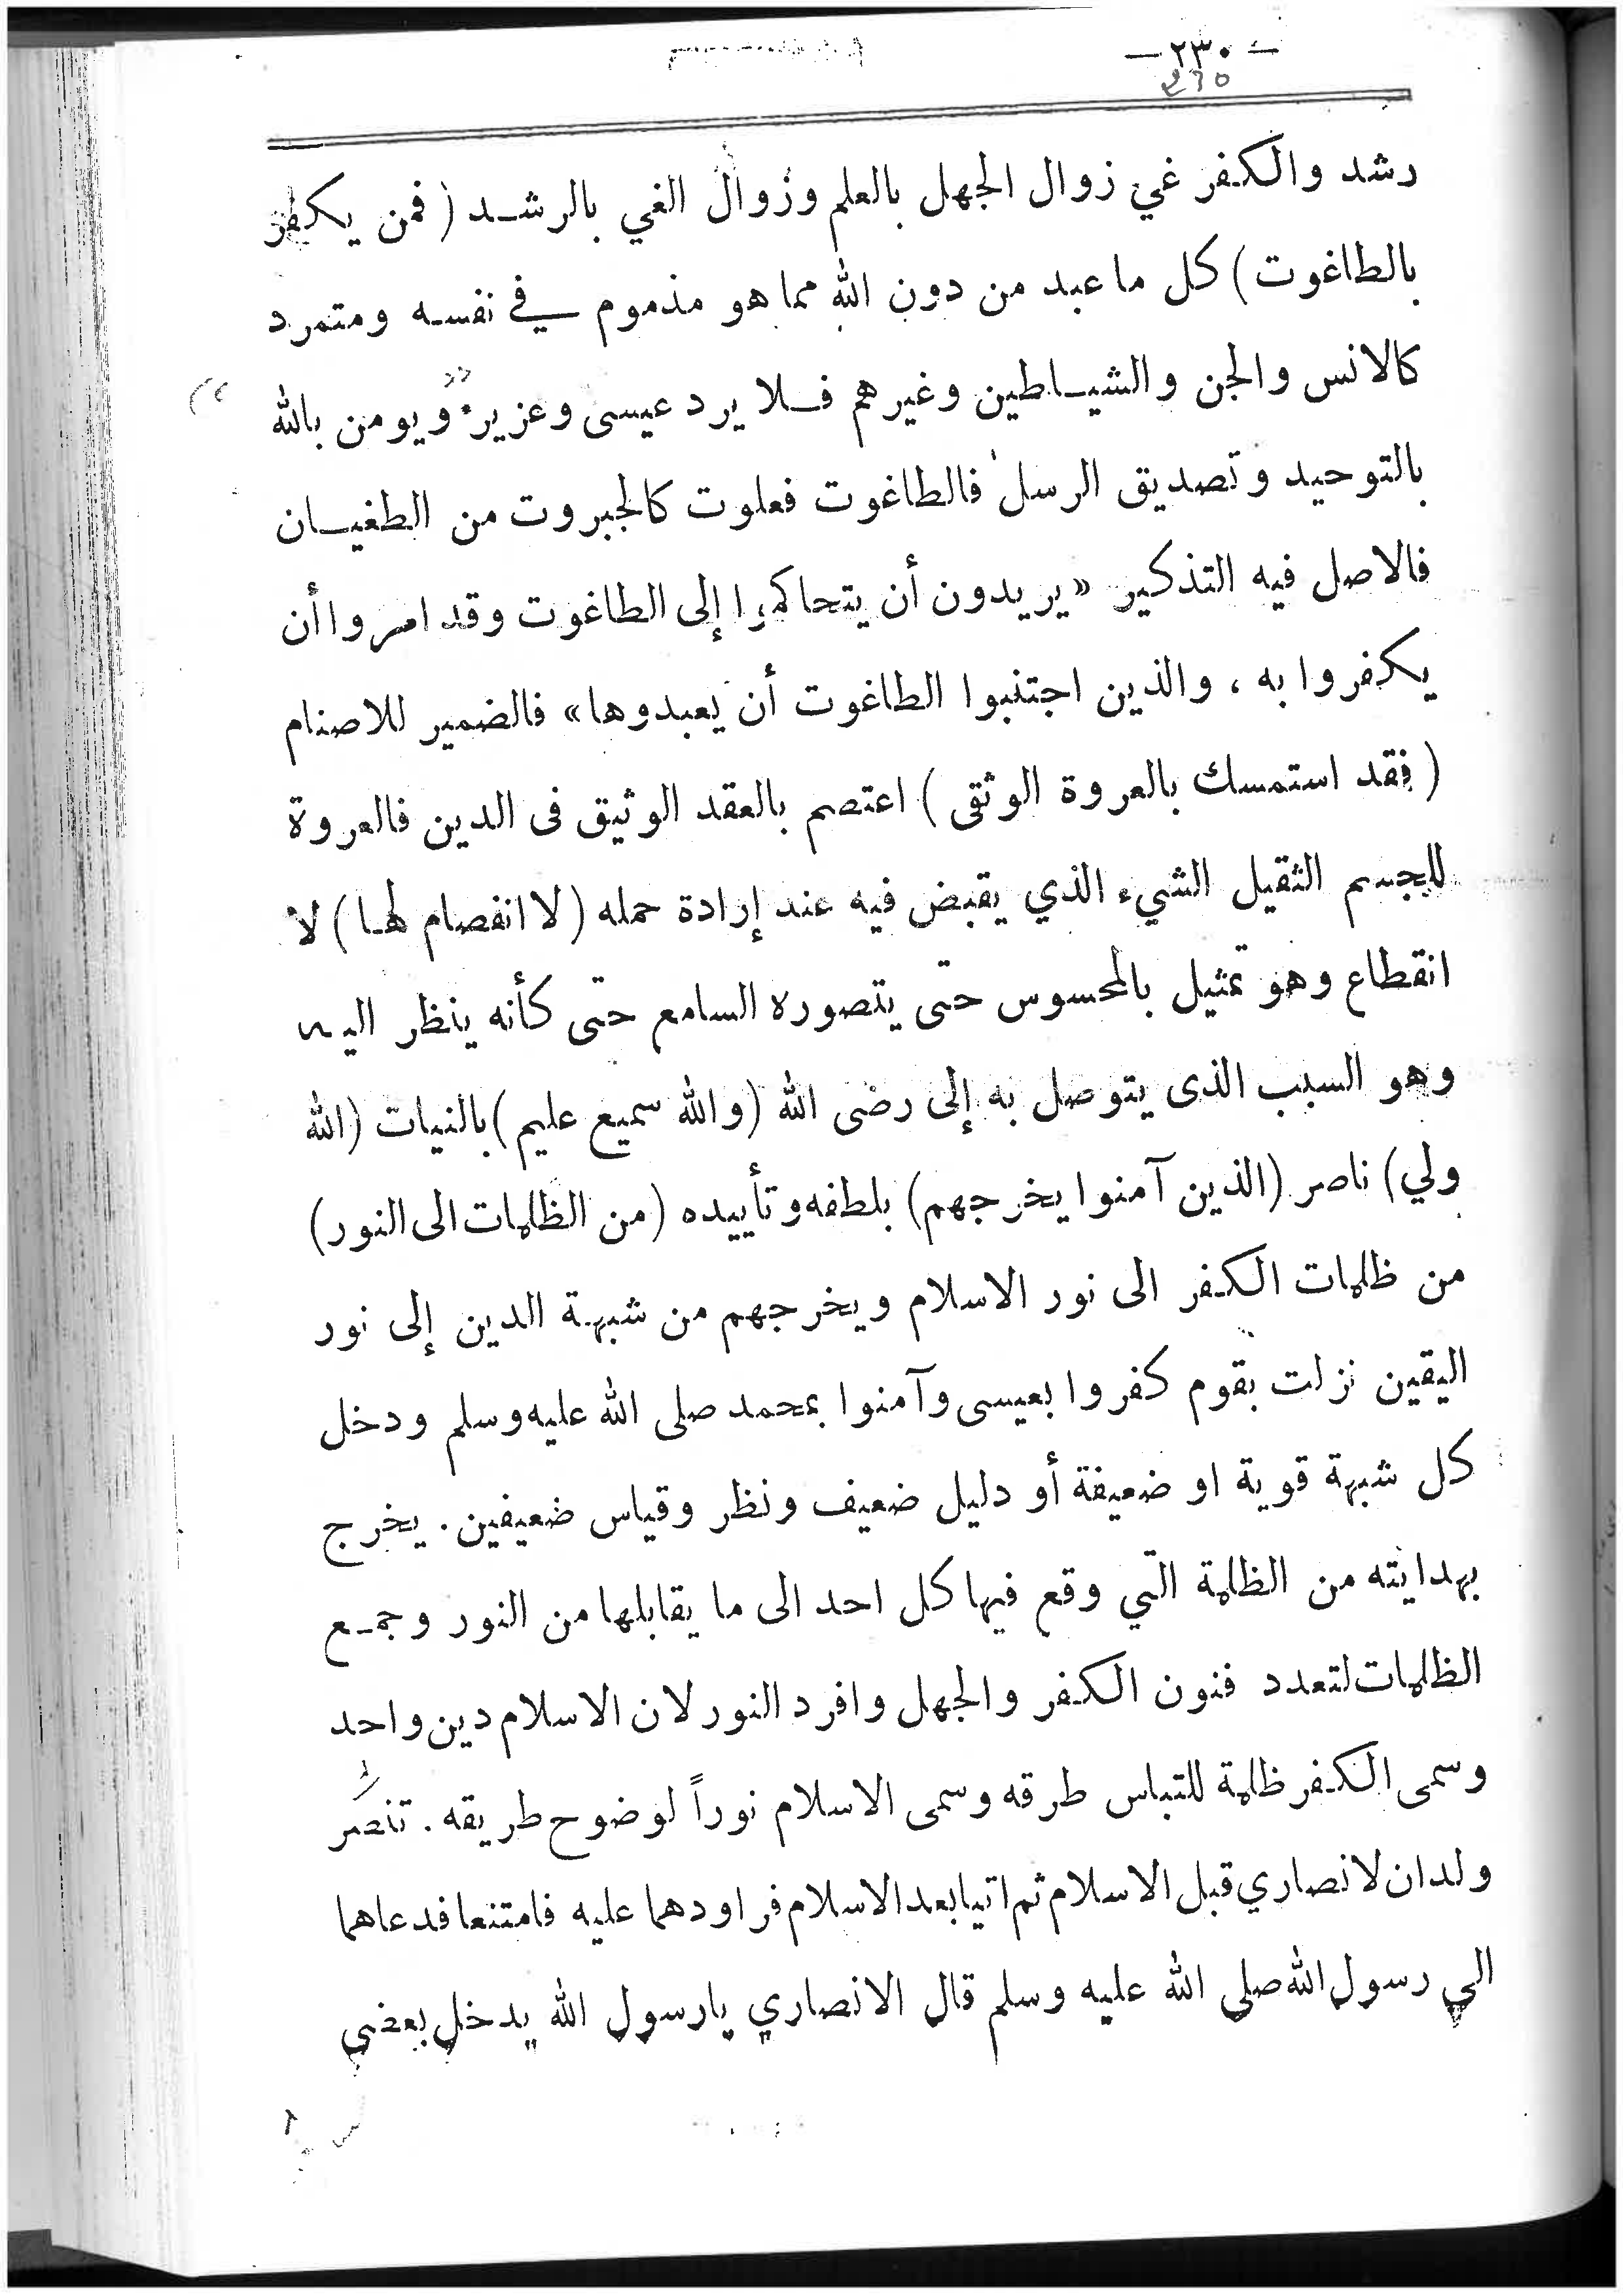 — ٢٣٠ —
230
رشد والكفر غي زوال الجهل بالعلم وزوال الغي بالرشد ( فمن يكفر
بالطاغوت ) كل ما عبد من دون الله مما هو مذموم في نفسه ومتمرد
كالانس والجن والشياطين وغيرهم فلا يرد عيسى وعزير « ويومن بالله
بالتوحيد وتصديق الرسل فالطاغوت فعلوت كالجبروت من الطغيان
فالاصل فيه التذكير « يريدون أن يتحاكموا إلى الطاغوت وقد امروا أن
يكفروا به ، والذين اجتنبوا الطاغوت أن يعبدوها » فالضمير للاصنام
( فقد استمسك بالعروة الوثقى ) اعتصم بالعقد الوثيق فى الدين فالعروة
للجسم الثقيل الشيء الذي يقبض فيه عند إرادة حمله ( لا انفصام لها ) لا
انقطاع وهو تمثيل بالمحسوس حتى يتصوره السامع حتى كأنه ينظر اليه
وهو السبب الذى يتوصل به إلى رضى الله ( والله سميع عليم ) بالنيات ( الله
ولي ) ناصر ( الذين آمنوا يخرجهم ) بلطفه وتأييده ( من الظلمات الى النور )
من ظلمات الكفر الى نور الاسلام ويخرجهم من شبهة الدين إلى نور
اليقين نزلت بقوم كفروا بعيسى وآمنوا بمحمد صلى الله عليه وسلم ودخل
كل شبهة قوية او ضعيفة أو دليل ضعيف ونظر وقياس ضعيفين . يخرج
بهدايته من الظلمة التي وقع فيها كل احد الى ما يقابلها من النور وجمع
الظلمات لتعدد فنون الكفر والجهل وافرد النور لان الاسلام دين واحد
وسمى الكفر ظلمة للتباس طرقه وسمى الاسلام نوراً لوضوح طريقه . تنصر
ولدان لانصاري قبل الاسلام ثم اتيا بعد الاسلام فراودهما عليه فامتنعا فدعاهما
الى رسول الله صلى الله عليه وسلم قال الانصاري يارسول الله يدخل بعضي